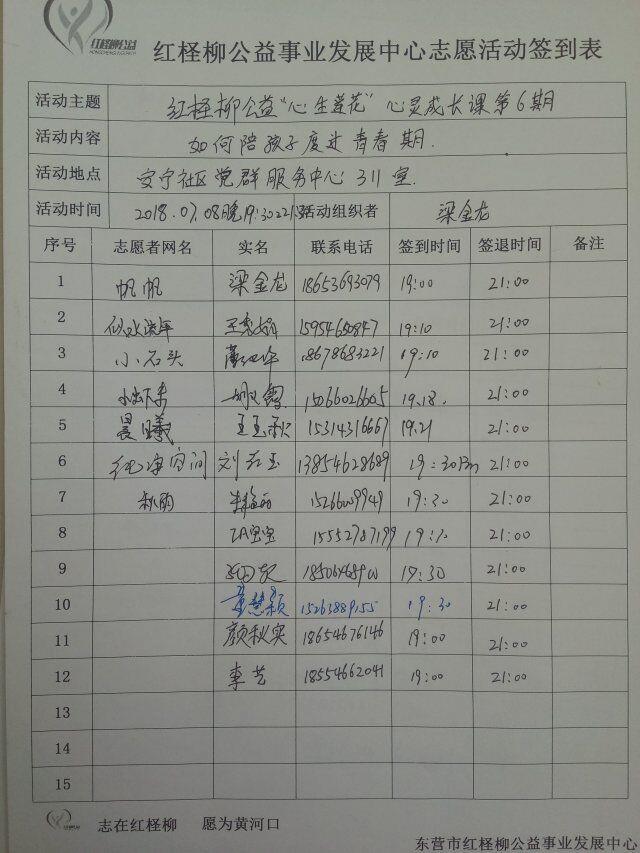 红柽柳公益
红柽柳公益事业发展中心志愿活动签到表
活动主题 红柽柳公益“心生莲花”心灵成长课第6期
活动内容 如何陪孩子度过青春期.
活动地点 安宁社区党群服务中心311室.
活动时间 2018.07.08晚19:30 活动组织者 梁金龙
序号 志愿者网名 实名 联系电话 签到时间 签退时间 备注
1 帆帆 梁金龙 18653693079 19:00 21:00
2 似水流年 15954650847 19:10 21:00
3 小石头 18678683221 19:10 21:00
4 15066026605 19.18. 21:00
5 晨曦 王玉秋 15314316667 19:21 21:00
6 纯净空间 刘红玉 13854628689 19:30 21:00
7 秋雨 15266009949 19:30 21:00
8 15552787199 21:00
9 19:30 21:00
10 董慧颖 15263889155 19:30 21:00
11 颜秋实 18654676146 19:00 21:00
12 李艺 18554662041 19:00 21:00
13
14
15
志在红柽柳 愿为黄河口
东营市红柽柳公益事业发展中心